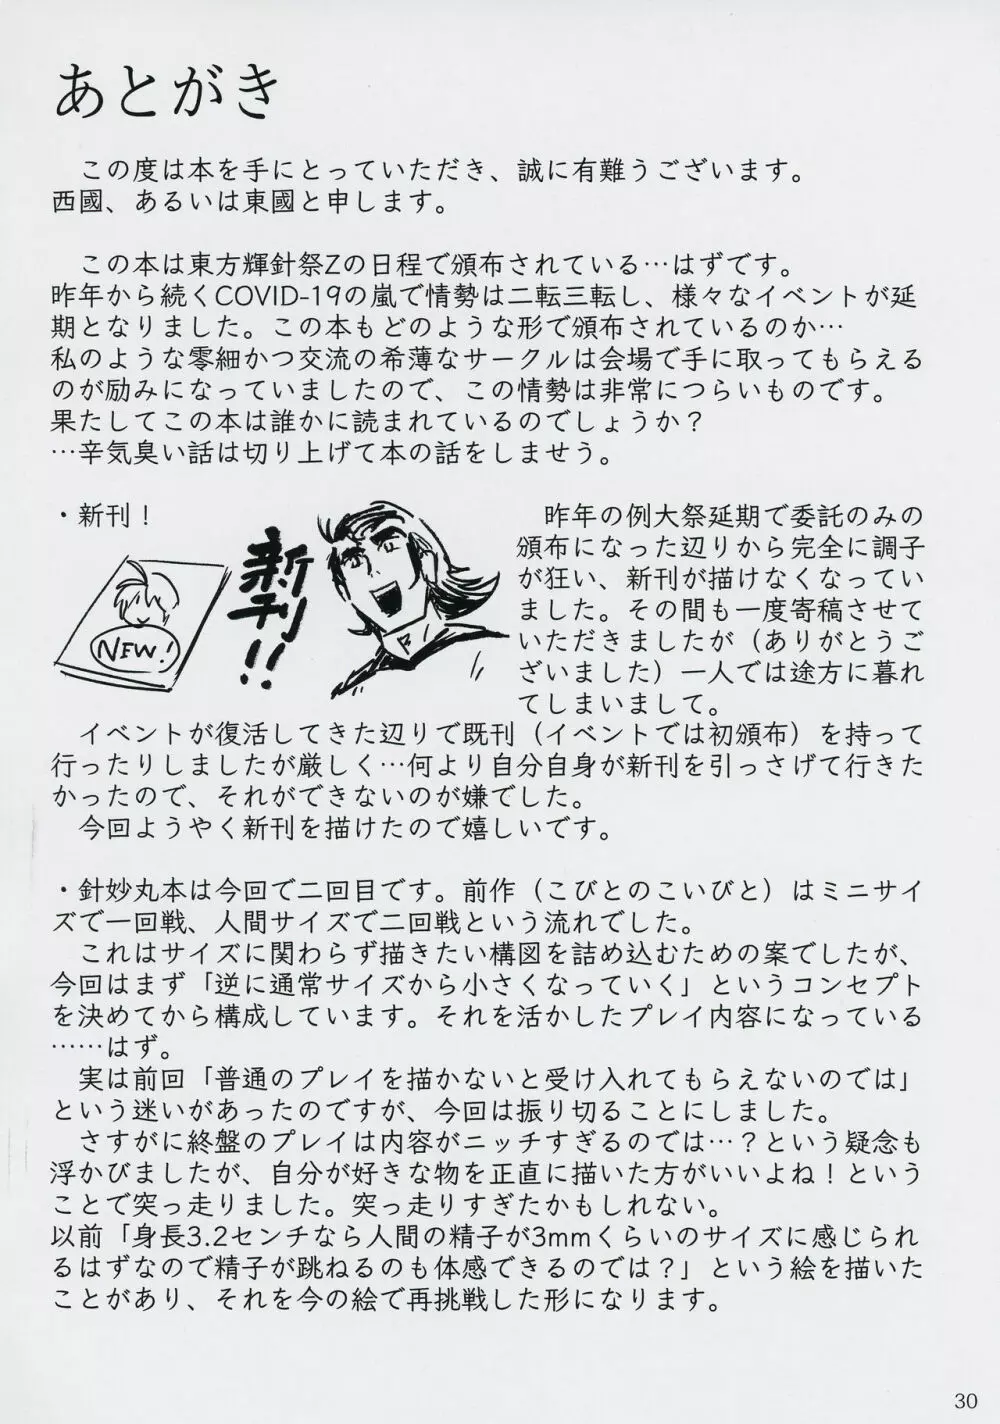 あとがき
この度は本を手にとっていただき、誠に有難うございます。
西國、あるいは東國と申します。
この本は東方輝針祭Zの日程で頒布されている…はずです。
昨年から続くCOVID-19の嵐で情勢は二転三転し、様々なイベントが延
期となりました。この本もどのような形で頒布されているのか…
私のような零細かつ交流の希薄なサークルは会場で手に取ってもらえる
のが励みになっていましたので、この情勢は非常につらいものです。
果たしてこの本は誰かに読まれているのでしょうか？
…辛気臭い話は切り上げて本の話をしませう。
・新刊！
NEW!
新刊!!
昨年の例大祭延期で委託のみの
頒布になった辺りから完全に調子
が狂い、新刊が描けなくなってい
ました。その間も一度寄稿させて
いただきましたが（ありがとうご
ざいました）一人では途方に暮れ
てしまいまして。
イベントが復活してきた辺りで既刊（イベントでは初頒布）を持って
行ったりしましたが厳しく…何より自分自身が新刊を引っさげて行きた
かったので、それができないのが嫌でした。
今回ようやく新刊を描けたので嬉しいです。
・針妙丸本は今回で二回目です。前作（こびとのこいびと）はミニサイ
ズで一回戦、人間サイズで二回戦という流れでした。
これはサイズに関わらず描きたい構図を詰め込むための案でしたが、
今回はまず「逆に通常サイズから小さくなっていく」というコンセプト
を決めてから構成しています。それを活かしたプレイ内容になっている
……はず。
実は前回「普通のプレイを描かないと受け入れてもらえないのでは」
という迷いがあったのですが、今回は振り切ることにしました。
さすがに終盤のプレイは内容がニッチすぎるのでは…？という疑念も
浮かびましたが、自分が好きな物を正直に描いた方がいいよね！という
ことで突っ走りました。突っ走りすぎたかもしれない。
以前「身長3.2センチなら人間の精子が3mmくらいのサイズに感じられ
るはずなので精子が跳ねるのも体感できるのでは？」という絵を描いた
ことがあり、それを今の絵で再挑戦した形になります。
30